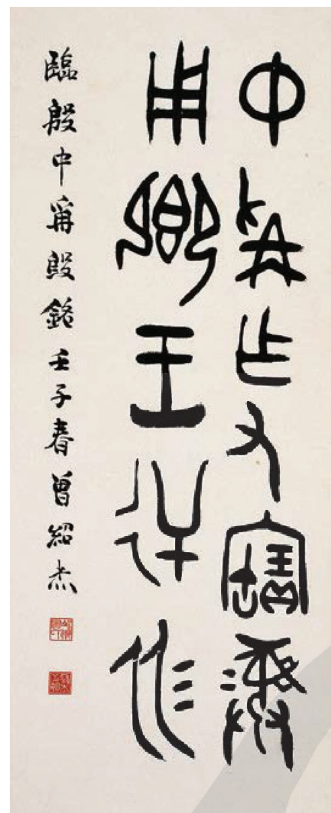 中爯乍又寶彝
用鄉王逆作
臨殷中爯𣪘銘 壬子春曾紹杰